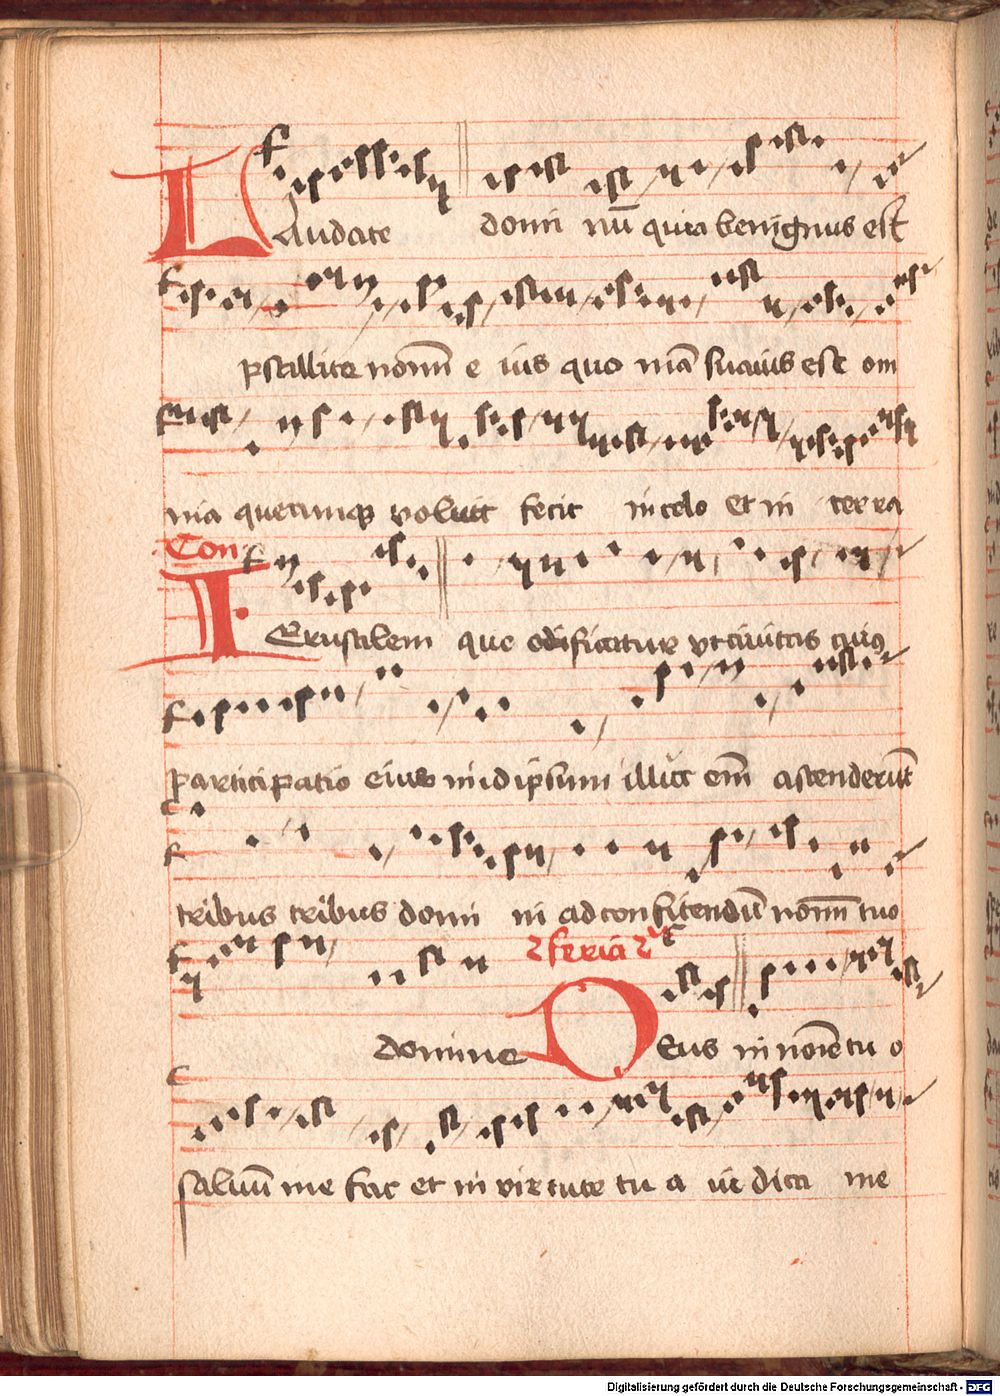 Laudate domi nū quia benignus est
psallite nomī e ius quo niā suauis est om
nia quecumqꝫ voluit fecit in celo et in terra
Con
IErusalem que edificatur vt ciuitas cuiꝯ
participatio eius in idipsum illuc em̄ ascenderūt
tribus tribus domi ni ad confitendū nomī tuo
2 feria 2ª
domine Deus in noīe tu o
saluū me fac et in virtute tu a iu dica me
Digitalisierung gefördert durch die Deutsche Forschungsgemeinschaft - DFG